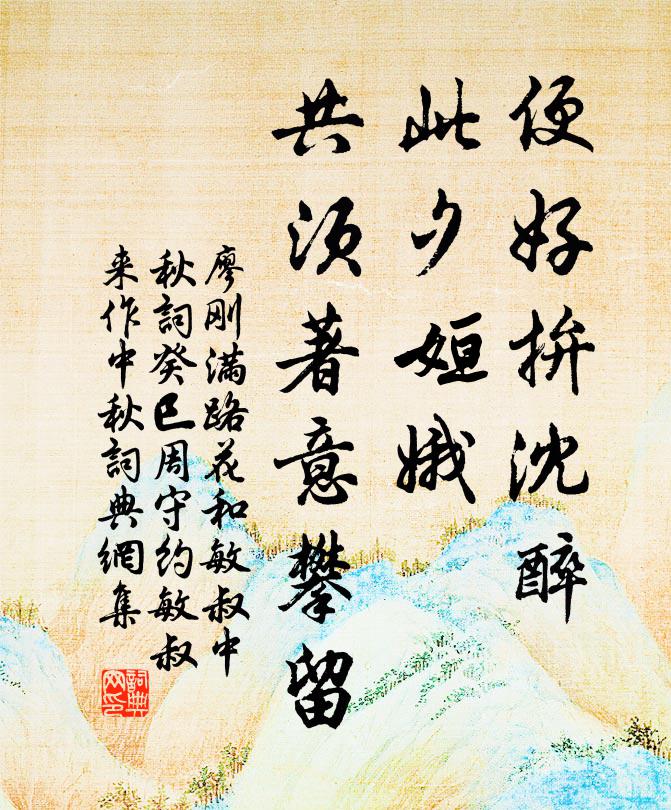 便好拚沈醉
此夕姮娥
共须著意攀留
廖刚满路花和敏叔中
秋詞癸巳周守約敏叔
来作中秋詞典網集
詞典
网印